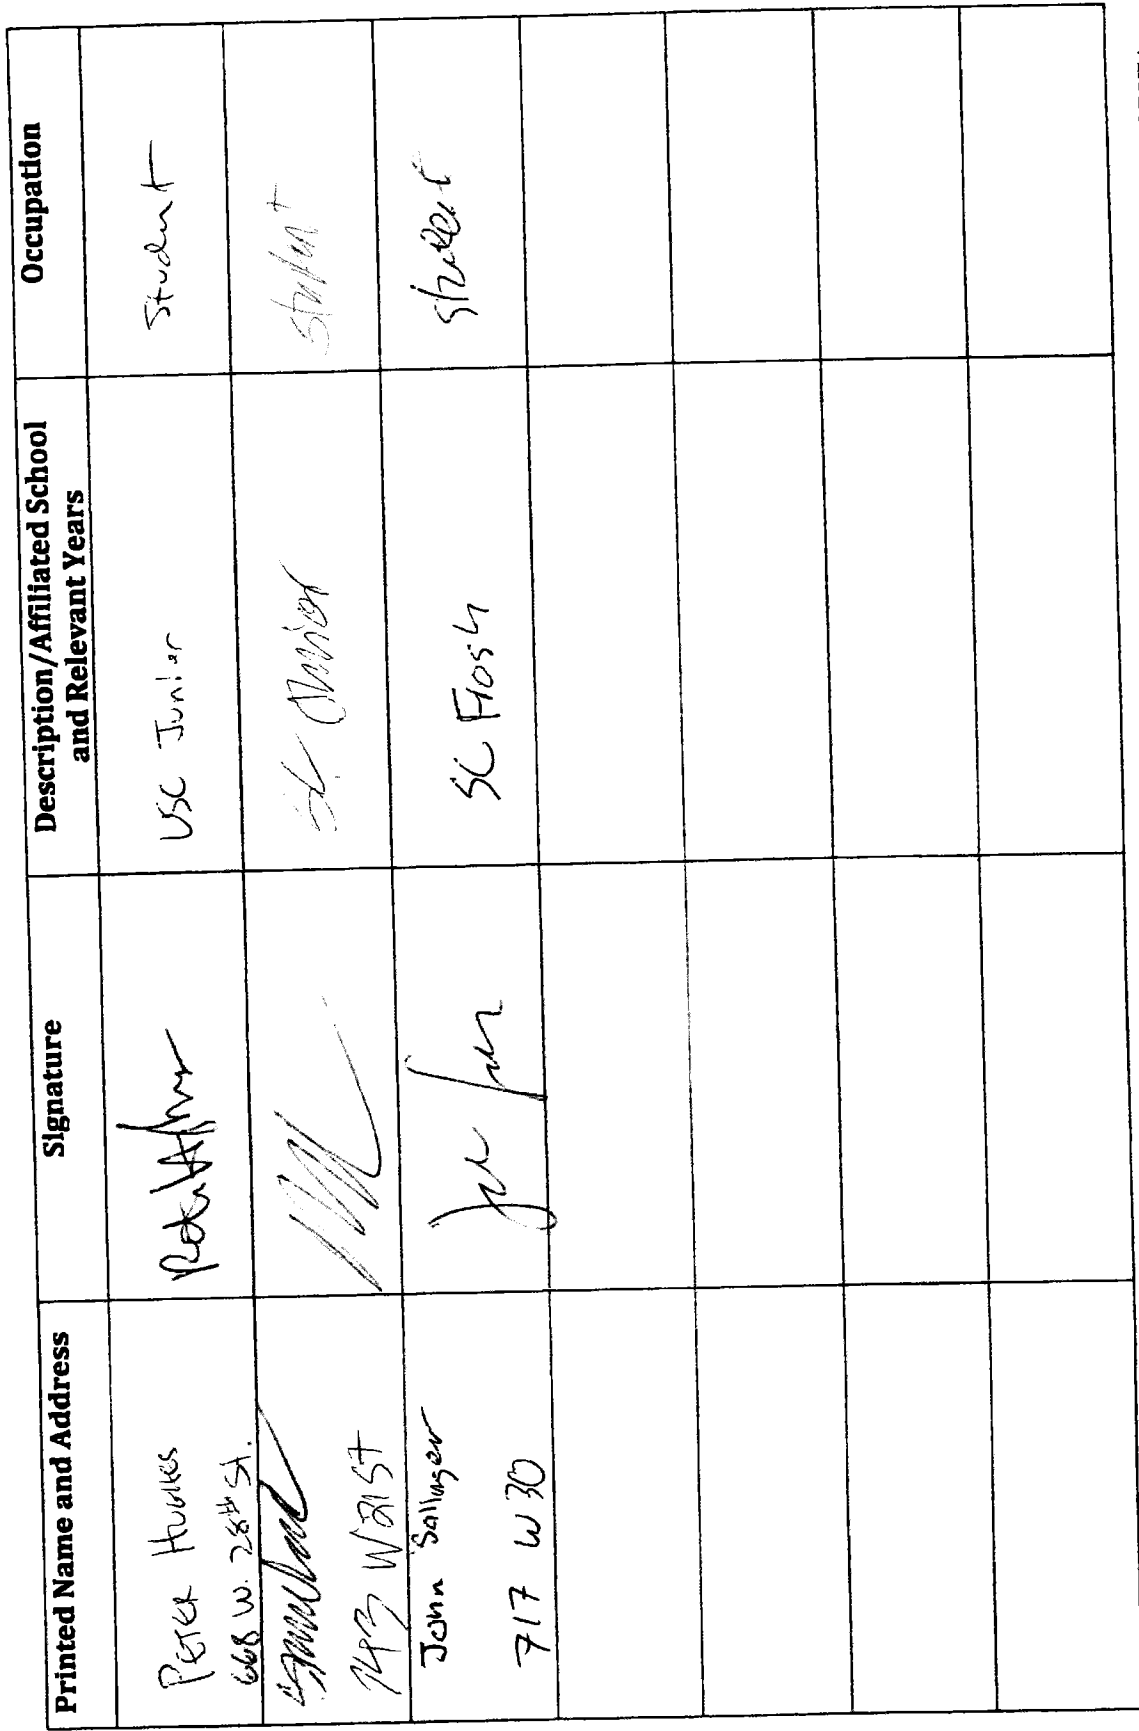 Printed Name and Address
Signature
Description/Affiliated School
and Relevant Years
Occupation
PETER HUGHES
668 W. 28th St.
USC Junior
Student
743 W 21st
SC Junior
Student
John Sallinger
717 W 30
SC Frosh
Student